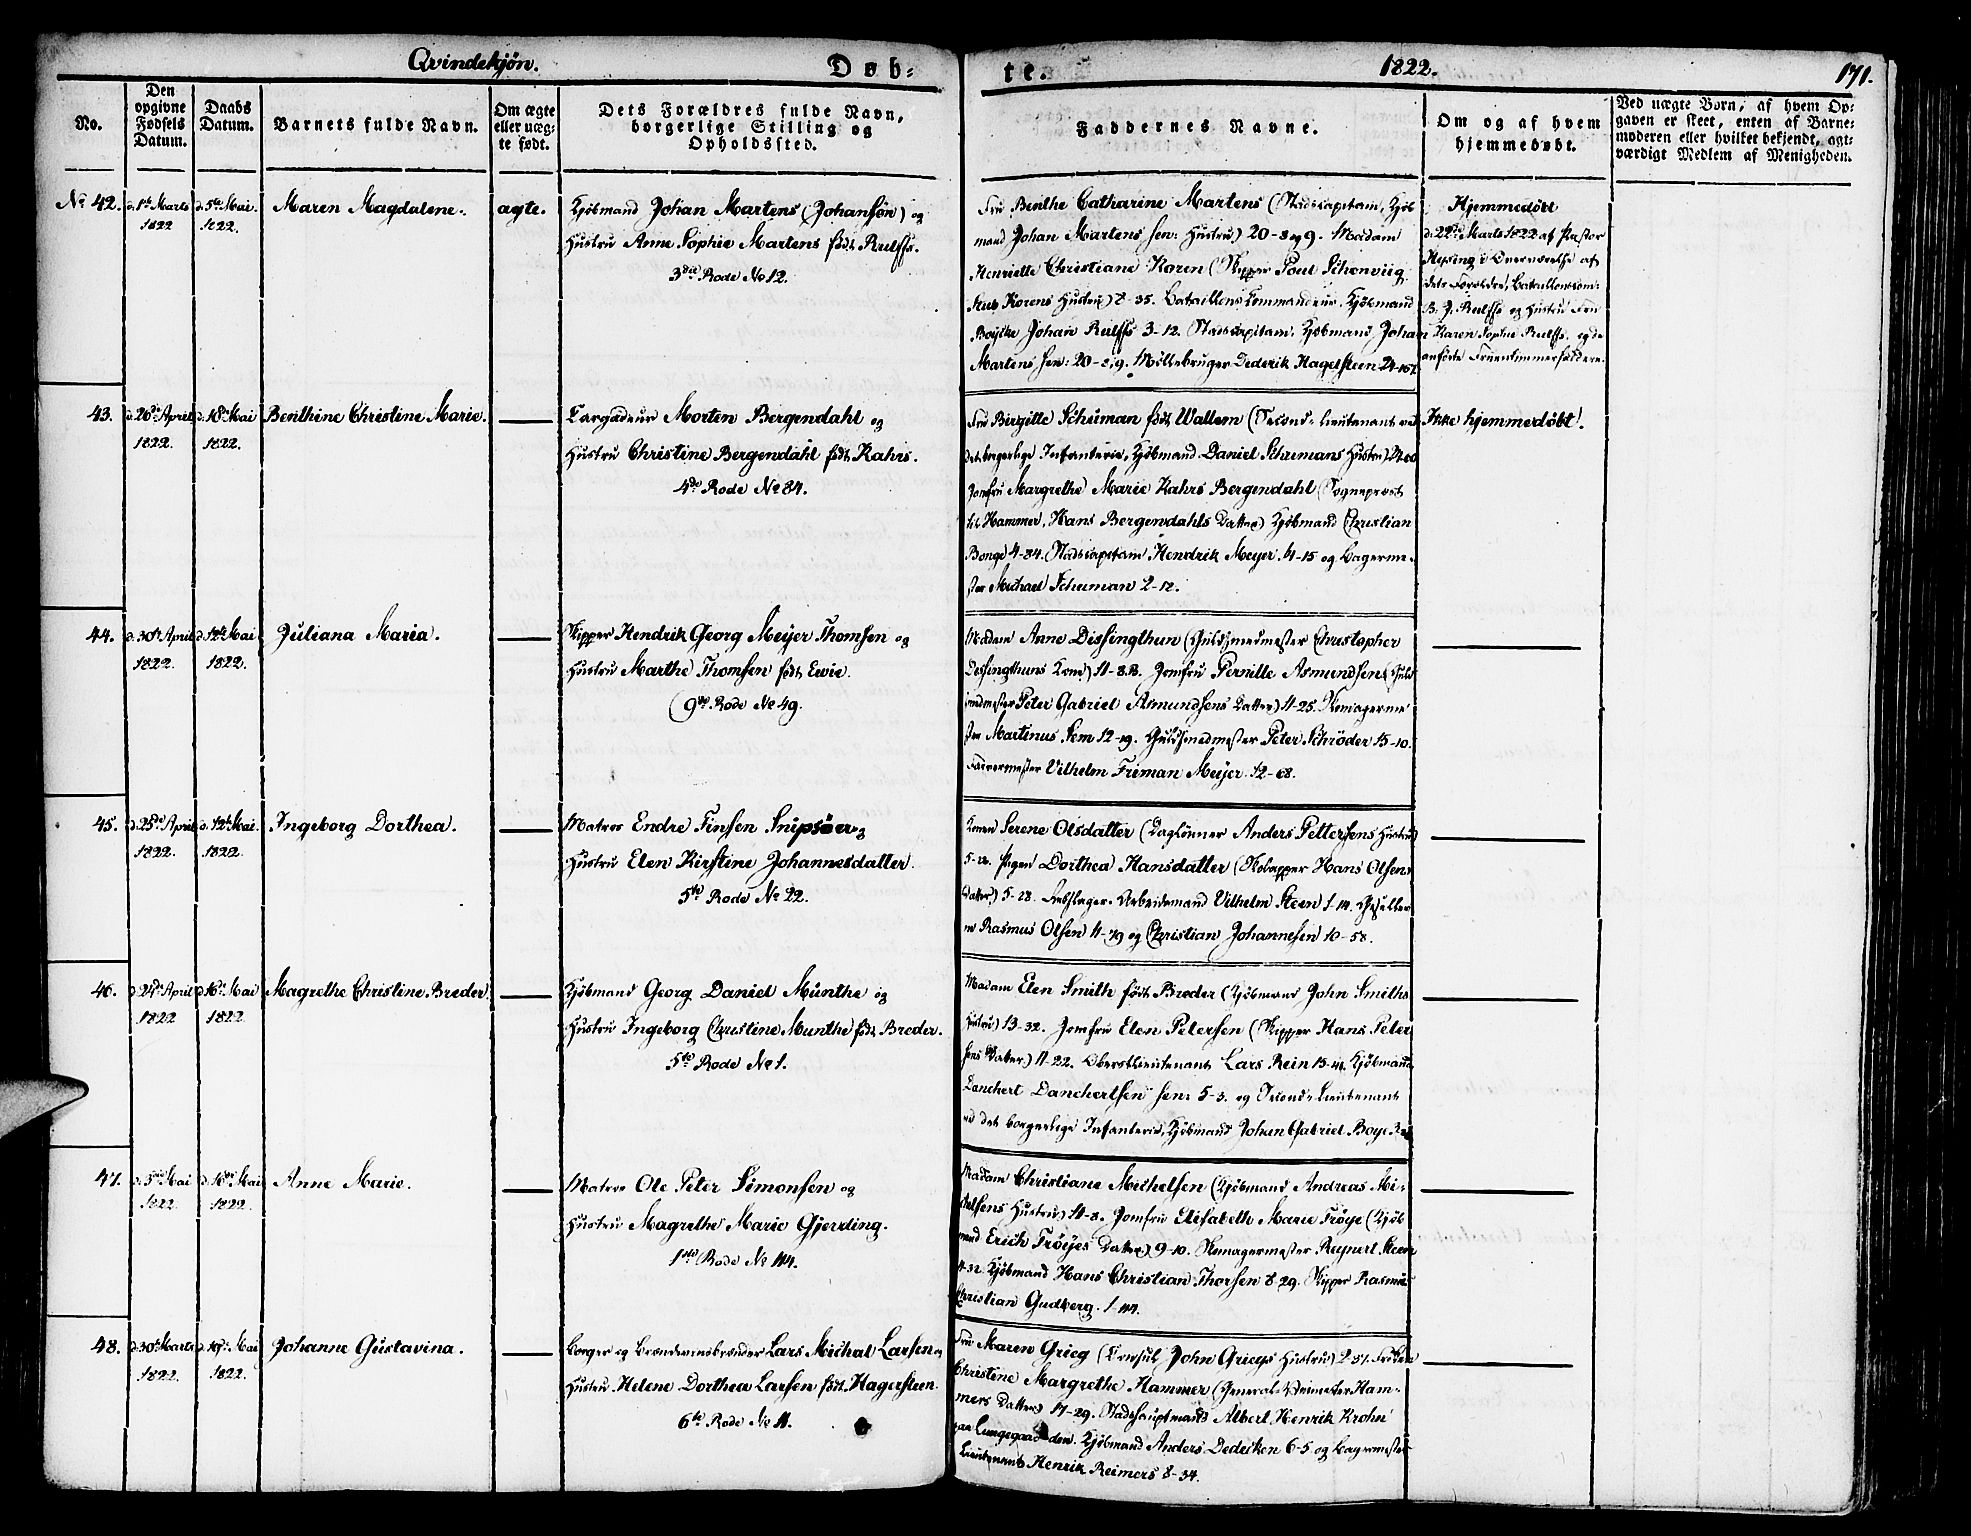 Qvindekjøn. Døb- te. 1822. 171.
No.
Den opgivne Fødsels Datum.
Daabs Datum.
Barnets fulde Navn.
Om ægte eller uæg- te født.
Dets Forældres fulde Navn, borgerlige Stilling og Opholdssted.
Faddernes Navne.
Om og af hvem hjemmedøbt.
Ved uægte Børn, af hvem Op- gaven er skeet, enten af Barne- moderen eller hvilket bekjendt, agt- værdigt Medlem af Menigheden.
No 42. d. 1ste Marts 1822 d. 5te Mai 1822. Maren Magdalene. ægte.
Kjøbmand Johan Martens (Johansøn) og
Hustru Anne Sophie Martens født Rulffs.
3die Rode No 12.
Fru Benthe Catharine Martens (Stadscapitain, Kjøb
mand Johan Martens sen: Hustru) 20-8 og 9. Madam
Henriette Christiane Koren (Skipper Poul Schonviig
Korens Hustru) 8-35. Bataillons Commandeur, Kjøbmand
Boyske Johan Rulffs 3-12. Stadscapitain, Kjøbmand, Johan
Martens sen: 20-8, 9. Møllebruger Dederik Hagelsteen 24-167.
Hjemmedøbt
d. 22de Marts 1822 af Pastor
Heping i Overværelse af
dets Forældre, Bataillonscom:
B. J. Rulffs og Hustru Fru
Karen Sophie Rulffs, og de
anførte Fruentimmerfaddere.
43. d. 26de April 1822. d. 18de Mai 1822. Benthine Christine Marie.
Targadeur Morten Bergendahl og
Hustru Christine Bergendahl født Kahrs.
4de Rode No 84.
Fru Birgitte Schuman født Wallem (Second-Lieutenant ved
det borgerlige Infanterie, Kjøbmand Daniel Schumans Hustru) 24-60
Jomfru Margrethe Marie Kahrs Bergendahl (Sognepræst
til Hammer, Hans Bergendahls Datter) Kjøbmand Christian
Bonge 4-84. Stadscapitain Hendrik Meyer 4-15 og Bagerme-
ster Michael Schuman 2-12.
Ikke hjemmedøbt!
44. d. 30te April 1822. d. 12te Mai 1822. Juliana Maria.
Skipper Hendrik Georg Meyer Thomsen og
Hustru Marthe Thomsen født Ewie.
(9de Rode No 49.
Madam Anne Dissingthun (Guldsmedmester Christopher
Dissingthuns Kone) 11-8. Jomfru Pernille Asmundsen (Guld
smedmester Peter Gabriel Asmundsens Datter) 11-25. Skomagerme
ster Martinus Sem 12-19. Guldsmedmester Peter Schrøder 15-10.
Farvermester Vilhelm Friman Meyer 12-68.
45. d. 25de April 1822. d. 12te Mai 1822. Ingeborg Dorthea.
Matros Endre Finsen Snipsøer og
Hustru Elen Kirstine Johannesdatter.
5te Rode No 22.
Konen Serene Olsdatter (Daglønner Anders Pettersens Hustru)
5-28. Pigen Dorthea Hansdatter (Hans Olsens
Datter) 5-28. Arbeidsmand Vilhelm Steen 1-14.
Rasmus Olsen 11-79 og Christian Johannesen 10-58.
46. d. 24de April 1822 d. 16de Mai 1822. Magrethe Christine Breder.
Kjøbmand Georg Daniel Munthe og
Hustru Ingeborg Christine Munthe født Breder.
5te Rode No 1.
Madam Elen Smith født Breder (Kjøbmand John Smiths
Hustru) 13-32. Jomfru Elen Petersen (Skipper Hans Peter
sens Datter) 11-22. Oberstlieutenant Lars Rein 15-41. Kjøbmand
Danchert Danchertsen sen: 5-3. og Second-Lieutenant
ved det borgerlige Infanterie, Kjøbmand Johan Gabriel Boye
47. d. 5te Mai 1822. d. 16de Mai 1822. Anne Marie.
Matros Ole Peter Simonsen og
Hustru Magrethe Marie Gjerding.
1ste Rode No 114.
Madam Christiane Michelsen (Kjøbmand Andreas Mi-
chelsens Hustru) 11-8. Jomfru Elisabeth Marie Frøye (Kjøb
mand Erich Frøyes Datter) 9-10. Skomagermester Reynert Steen
11-32. Kjøbmand Hans Christian Thorsen 8-29. Skipper Rasmus
Christian Gudberg. 1-114.
48. d. 30te Marts 1822. d. 19de Mai 1822. Johanne Gustavina.
Borger og Brændeviinsbrænder Lars Michal Larsen og
Hustru Helene Dorthea Larsen født Hagersteen.
6te Rode No 11.
Fru Maren Grieg (Consul John Griegs Hustru) 2-51. Frøken
Christene Margrethe Hammer (General-Veimester Ham-
mers Datter) 17-29. Stadshauptmand Albert Henrik Krohn
paa Lungegaarden. Kjøbmand Anders Dedecken 6-5 og Bagermester
Lieutenant Henrik Reimers 8-34.